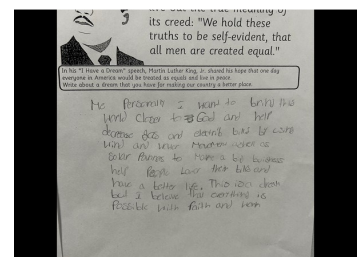 its creed: "We hold these
truths to be self-evident, that
all men are created equal."
In his "I Have a Dream" speech, Martin Luther King, Jr. shared his hope that one day
everyone in America would be treated as equals and live in peace.
Write about a dream that you have for making our country a better place.
Me Personally I want to bring this
world closer to God and help
decrease gas and bills by using
wind and water
solar Panels to a big business
help People lower their bills and
have a better life. This is a dream
but I believe that everything is
Possible with faith and